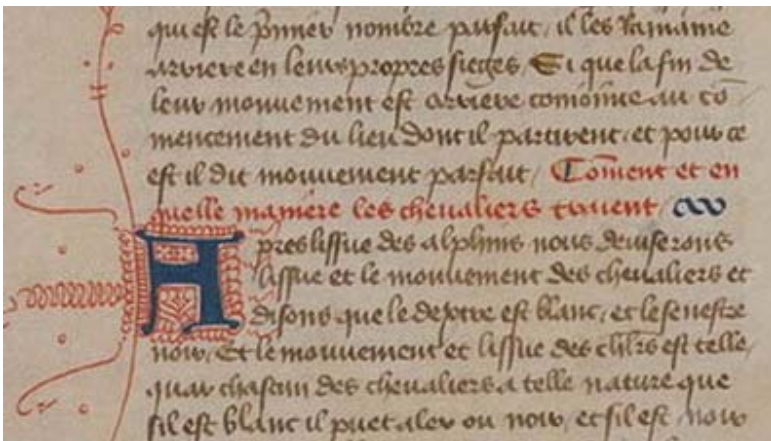 qui est le p̃mier nombre parfait, il les ramaine
arriere en leurs propres sieges, Si que la fin de
leur mouuement est arriere coniointe au cõ
mencement du lieu dont il partirent, et pour ce
est il dit mouuement parfait, Cõment et en
quelle maniere les cheualiers traient,
Apres lissue des alphins nous deuiserons
lissue et le mouuement des cheualiers et
disons que le dextre est blanc, et le senestre
noir, Et le mouuement et lissue des chlr̃s est telle,
quar chascun des cheualiers a telle nature que
sil est blanc il puet aler ou noir, et sil est noir